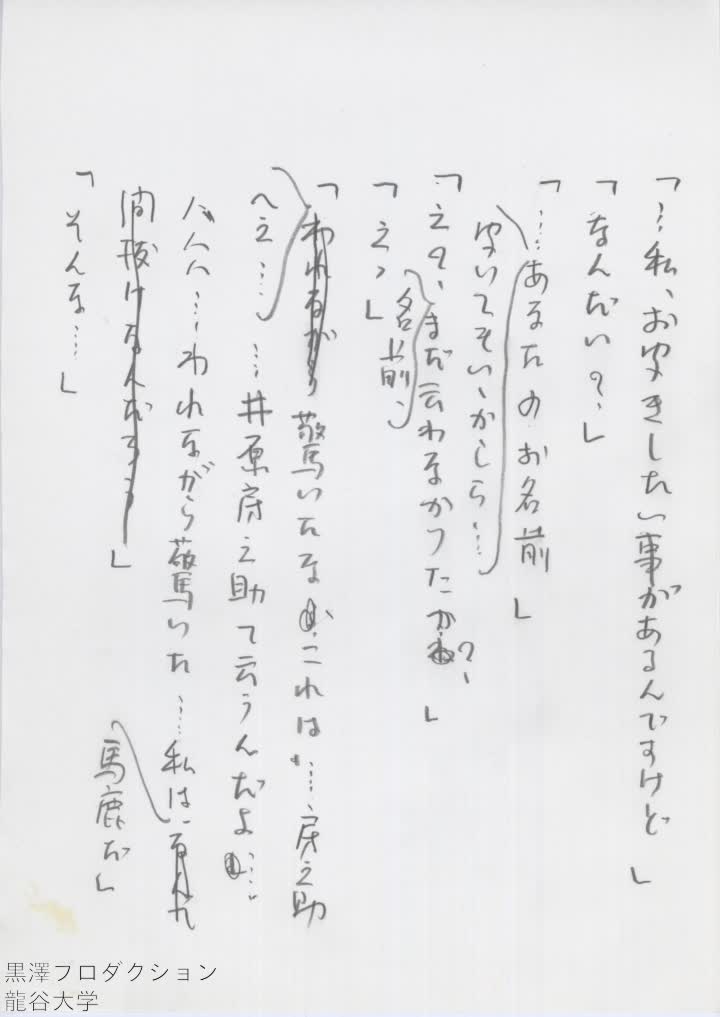 「…私、おゆきしたい事があるんですけど」
「なんだい？」
「…あなたのお名前」
ゆいてもいゝかしら…
「えっ、まだ云わなかったか？」
名前、
「えゝ」
「われながら驚いたな、これは…房之助
へえ……井原房之助て云うんだよ…
ハハハ…われながら驚いた…私はなんて
間抜けなんだろう」
馬鹿だ」
「そんな…」
黒澤プロダクション
龍谷大学